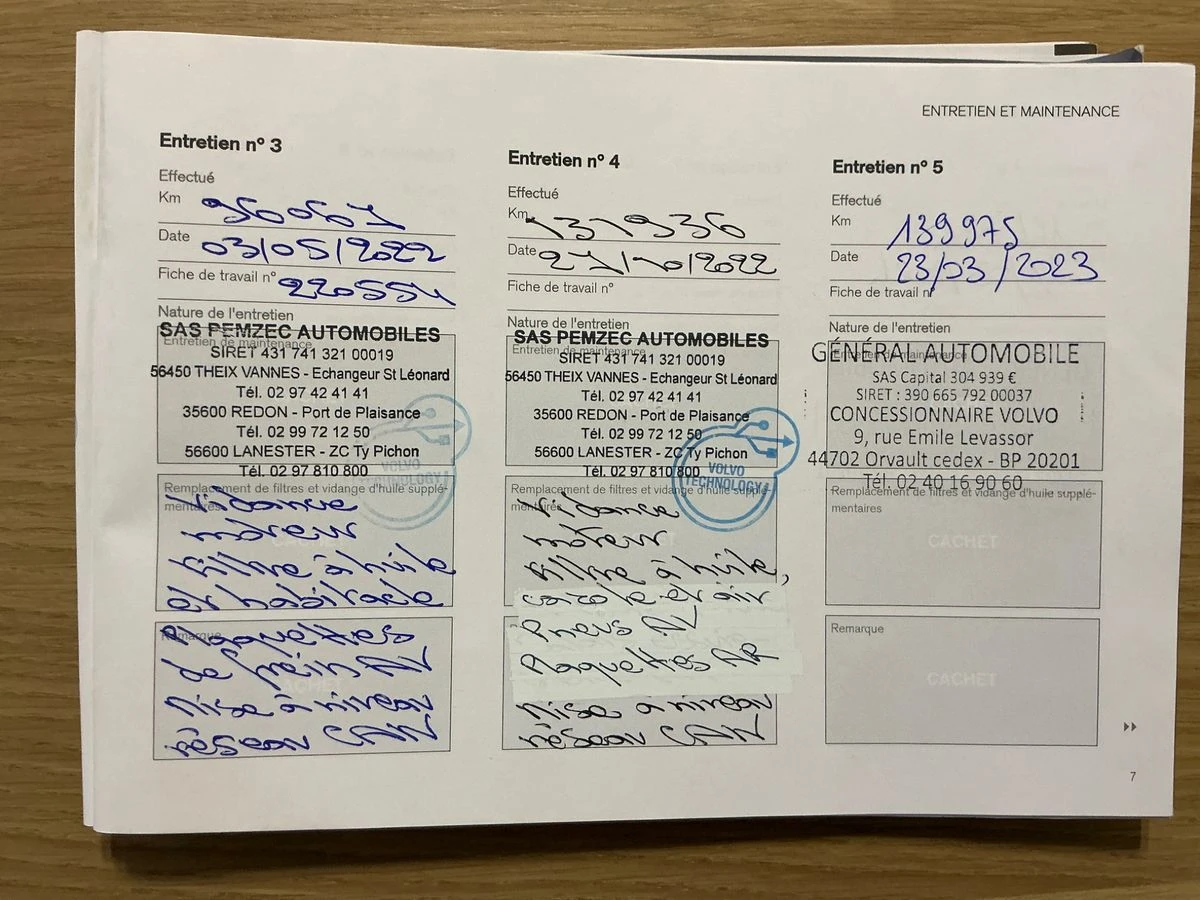 ENTRETIEN ET MAINTENANCE
Entretien nº 3
Effectué
Km
Date 03/05/2022
Fiche de travail nº 220554
Nature de l'entretien
Entretien de maintenance
SAS PEMZEC AUTOMOBILES
SIRET 431 741 321 00019
56450 THEIX VANNES - Echangeur St Léonard
Tél. 02 97 42 41 41
35600 REDON - Port de Plaisance
Tél. 02 99 72 12 50
56600 LANESTER - ZC Ty Pichon
Tél. 02 97 810 800
VOLVO
TECHNOLOGY
Remplacement de filtres et vidange d'huile supplé-
mentaires
Vidange
moteur
filtre à huile
et habitacle
CACHET
Remarque
Plaquettes
de frein AV
Mise à niveau
réseau CAN
CACHET
Entretien nº 4
Effectué
Km 131936
Date 21/10/2022
Fiche de travail nº
Nature de l'entretien
Entretien de maintenance
SAS PEMZEC AUTOMOBILES
SIRET 431 741 321 00019
56450 THEIX VANNES - Echangeur St Léonard
Tél. 02 97 42 41 41
35600 REDON - Port de Plaisance
Tél. 02 99 72 12 50
56600 LANESTER - ZC Ty Pichon
Tél. 02 97 810 800
VOLVO
TECHNOLOGY
Remplacement de filtres et vidange d'huile supplé-
mentaires
Vidange
moteur
filtre à huile,
et air
Pneus AV
Plaquettes AR
Mise à niveau
réseau CAN
Entretien nº 5
Effectué
Km 139975
Date 23/03/2023
Fiche de travail nº
Nature de l'entretien
Entretien de maintenance
GÉNÉRAL AUTOMOBILE
SAS Capital 304 939 €
SIRET : 390 665 792 00037
CONCESSIONNAIRE VOLVO
9, rue Emile Levassor
44702 Orvault cedex - BP 20201
Tél. 02 40 16 90 60
Remplacement de filtres et vidange d'huile supplé-
mentaires
CACHET
Remarque
CACHET
7